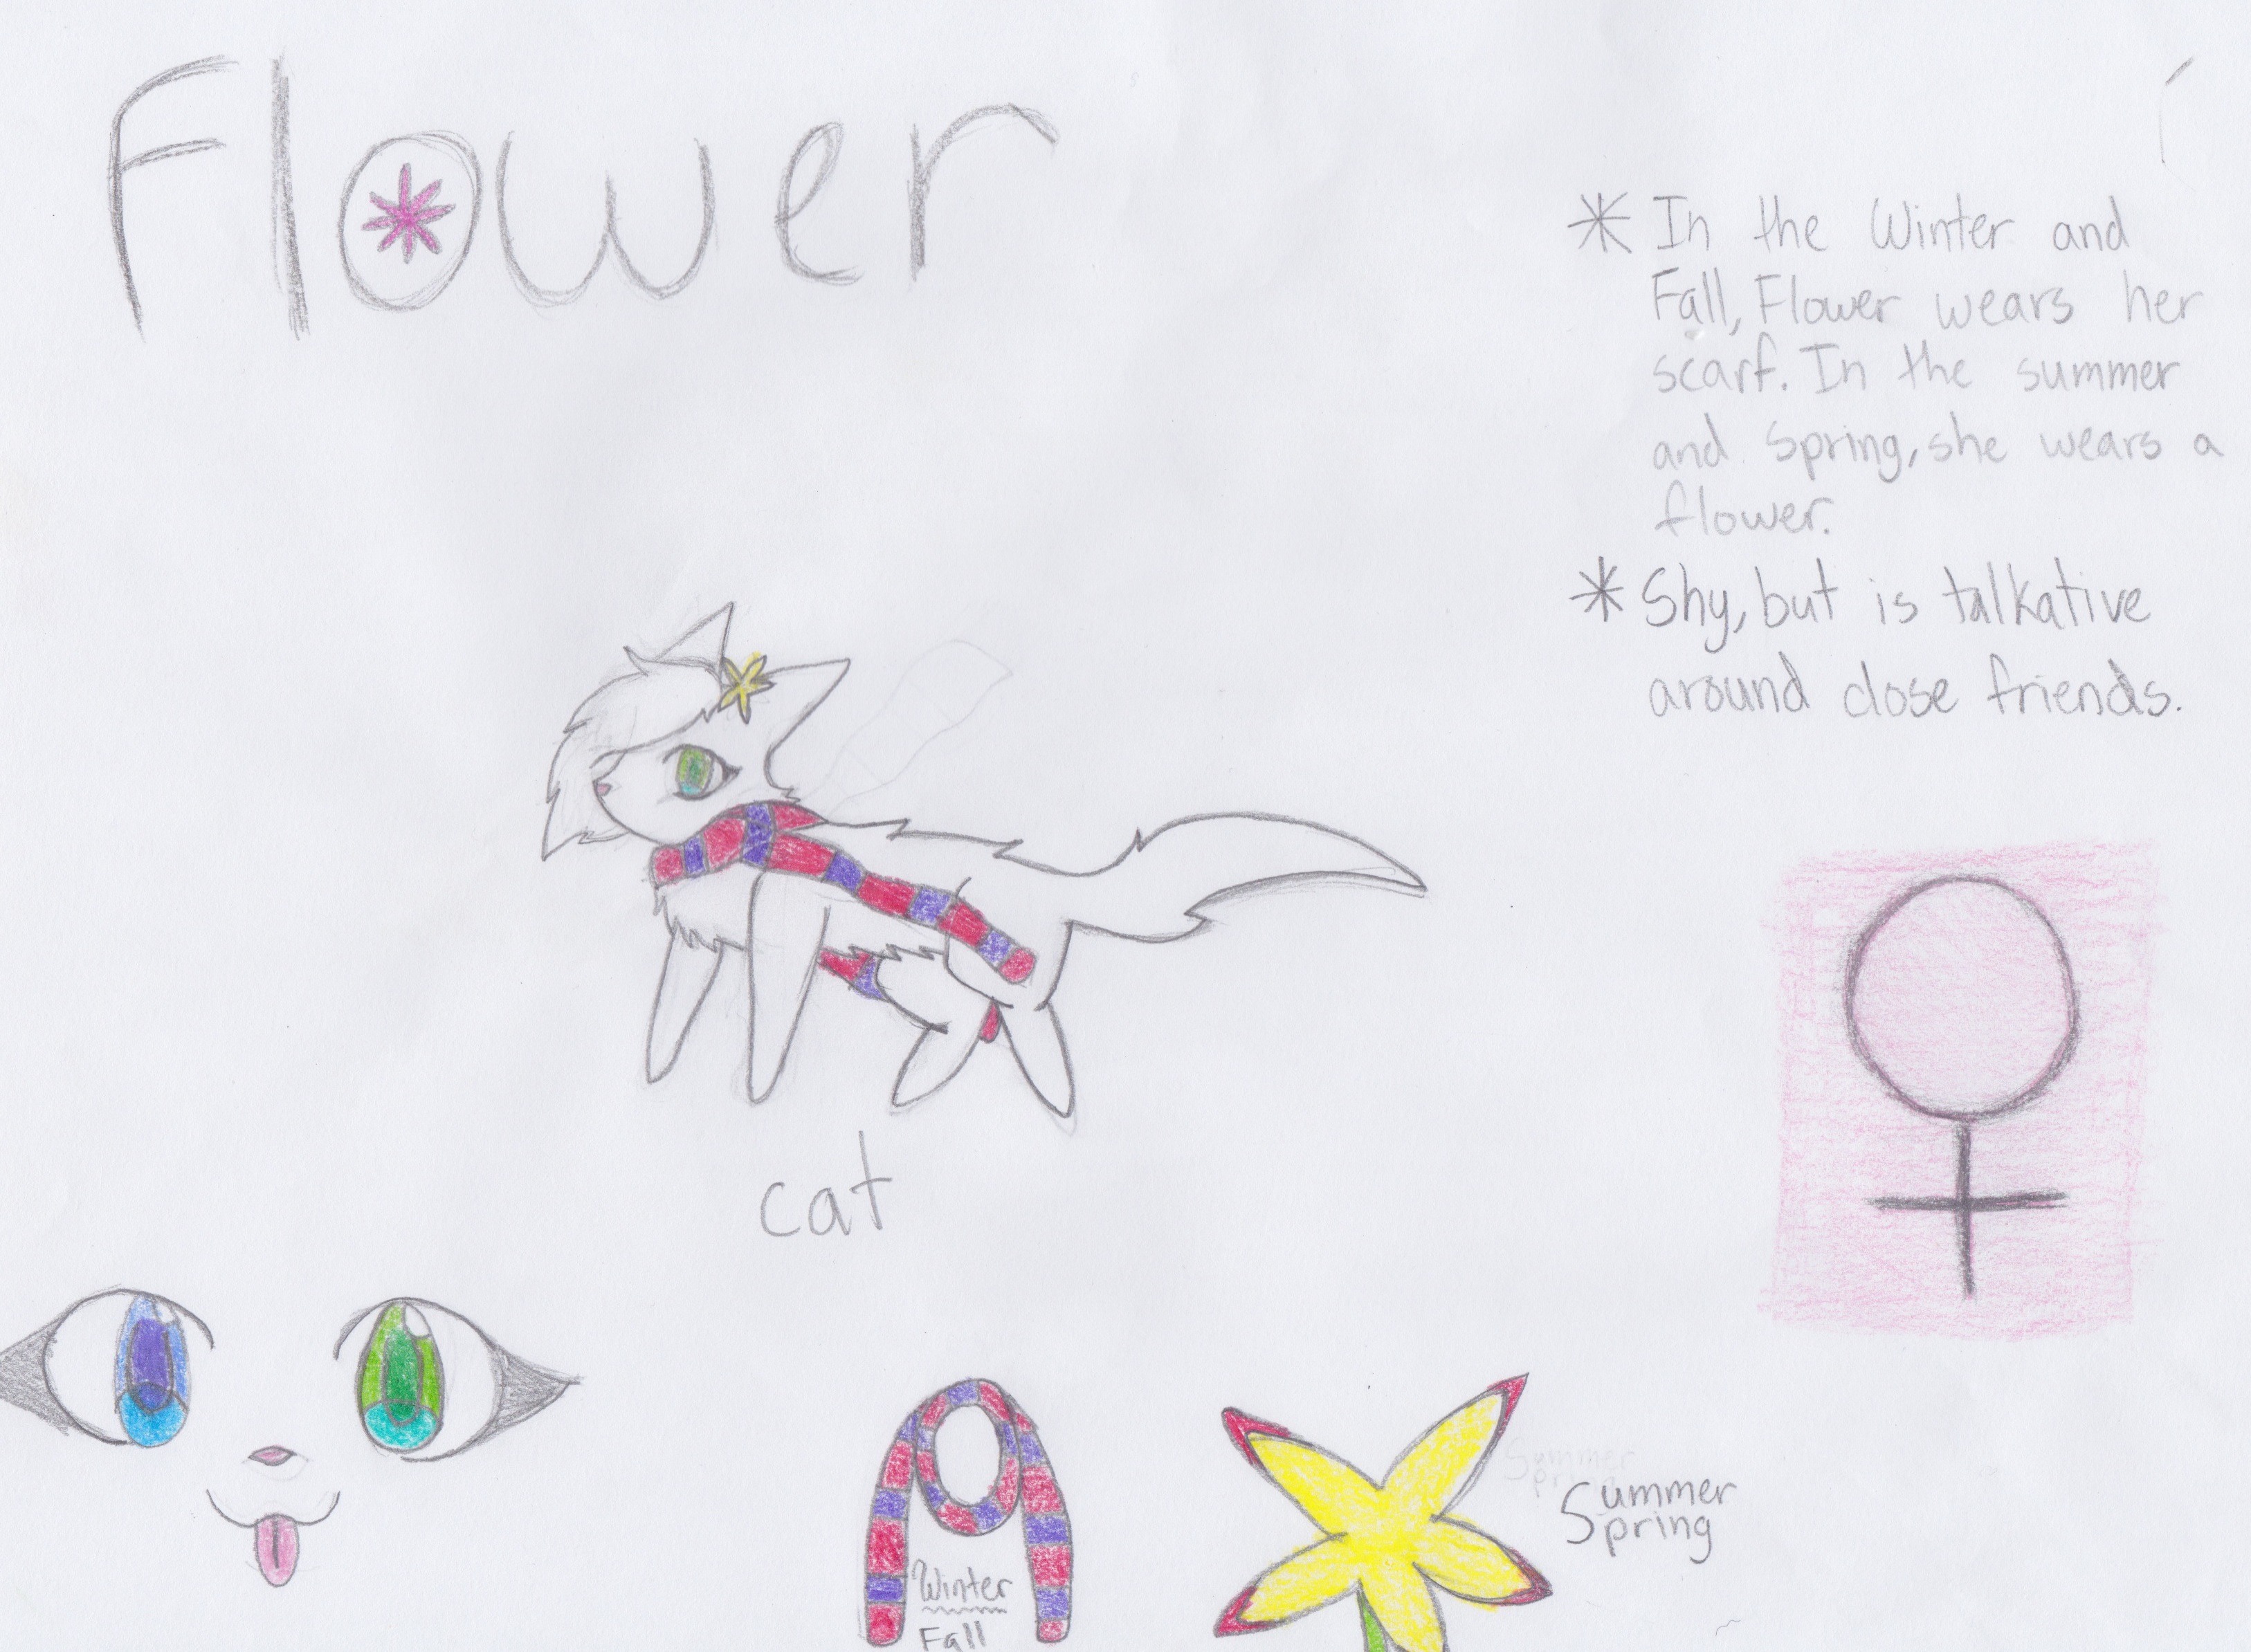 Flower
* In the Winter and
Fall, Flower wears her
scarf. In the summer
and Spring, she wears a
flower.
* Shy, but is talkative
around close friends.
cat
Winter
Fall
Summer
Spring
Summer
Spring